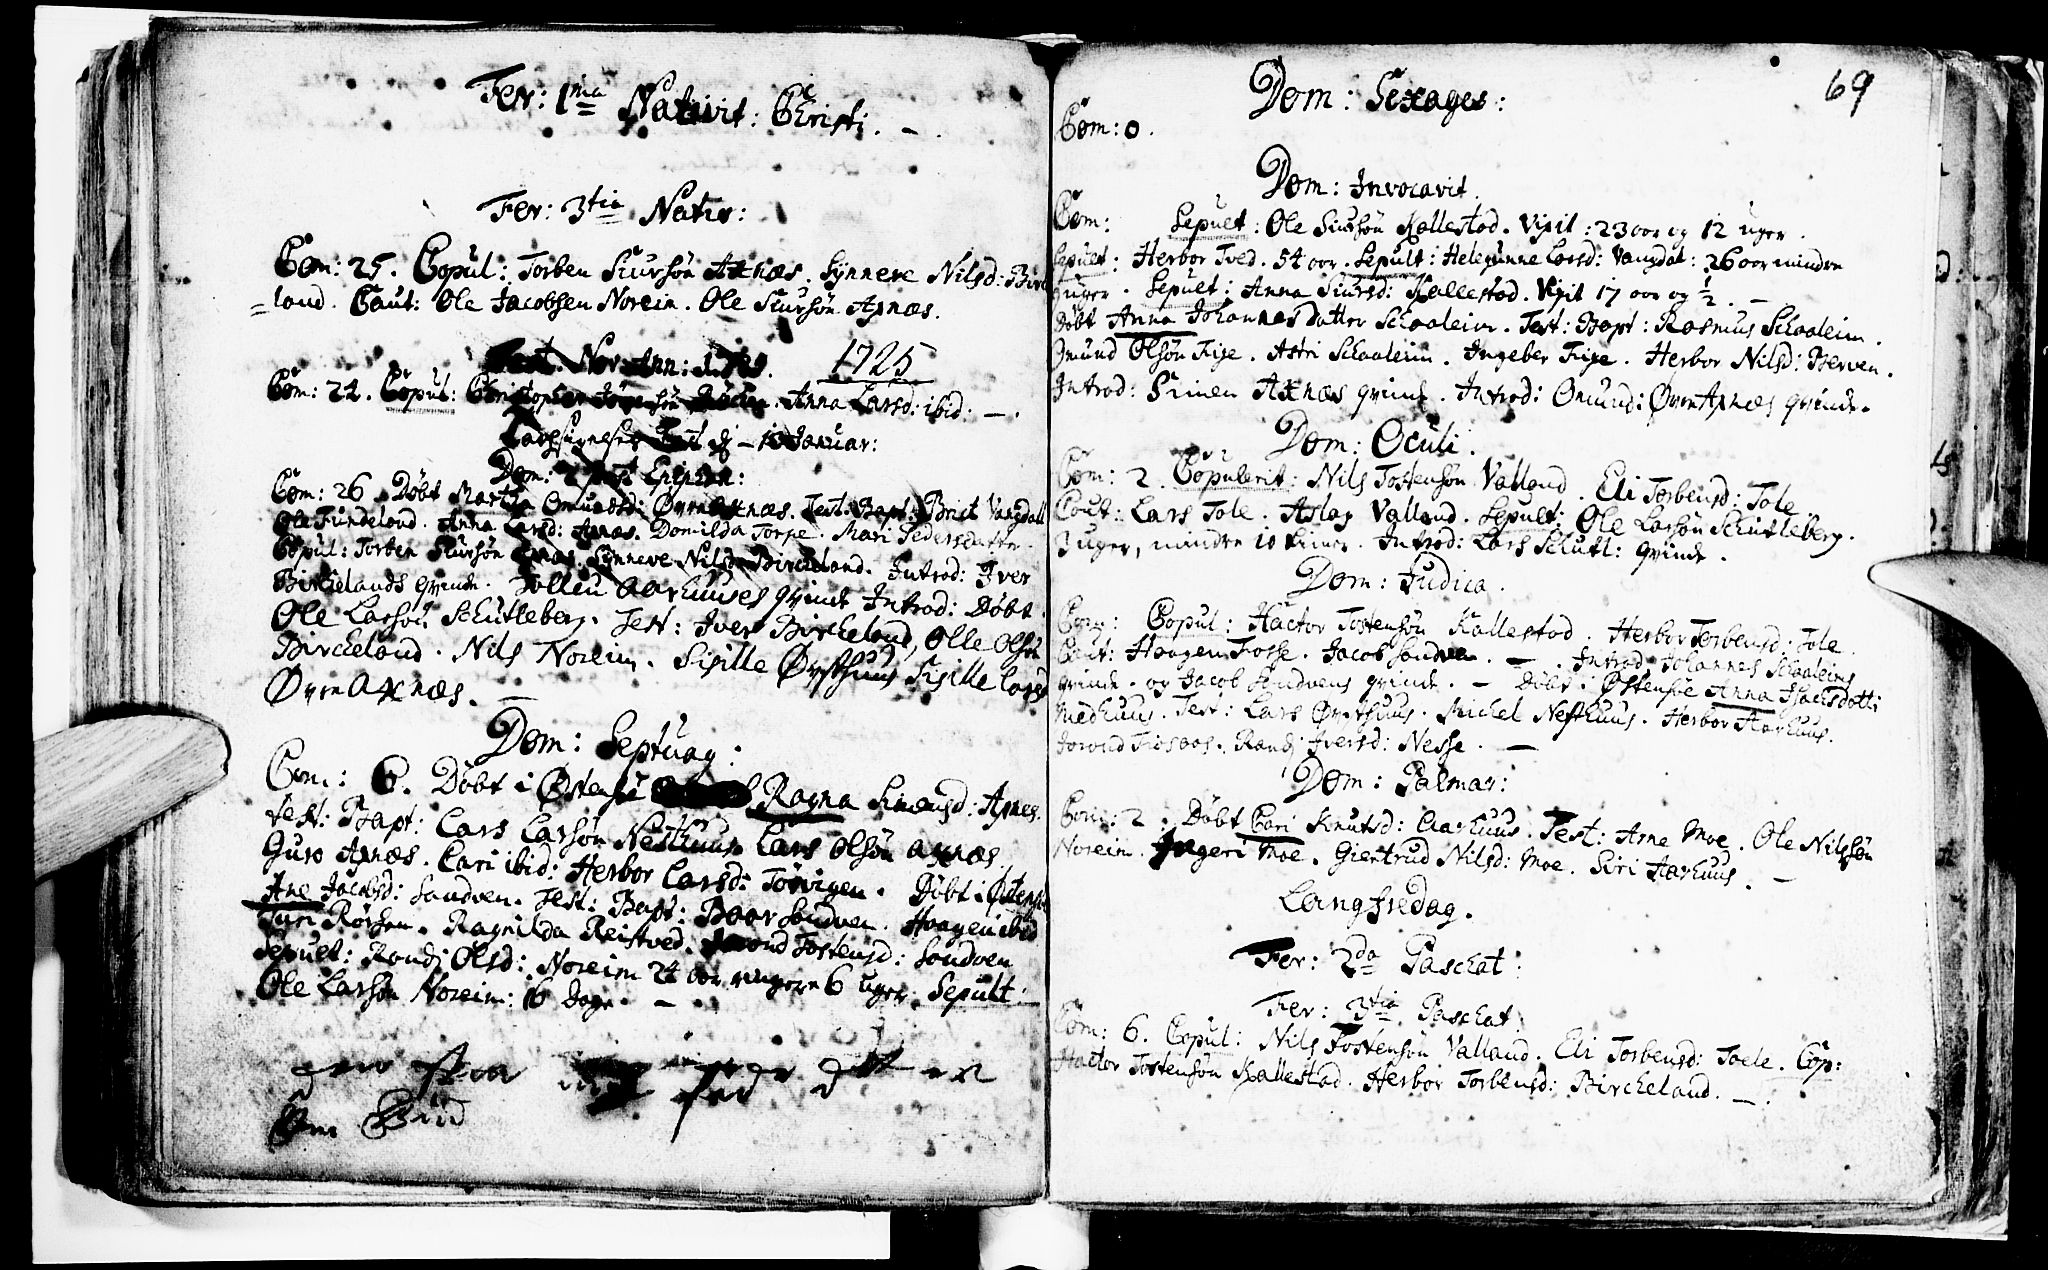 Fer: 1ma Nativit: Christi.
Fer: 3tia Nativ:
Com: 25. Copul: Torben Siursøn Axnæs, Synneve Nilsd: Birke
=land. Caut: Ole Jacobsen Noreim. Ole Siursøn Axnæs.
Fest. Nov. Ann: 1725. 1725
Com: 24. Copul: Christopher Anna Larsd: ibid:
Januar:
Dom: 2 post Epiphan:
Com: 26. Døbt Martha Omundsd: Øvre Axnæs. Test. Bapt: Brit Vangdall
Ole Fundeland. Anna Larsd: Axnæs. Domilda Torpe. Mari Pedersdatter.
Copul: Torben Siursøn Axnæs. Synneve Nilsd: Birckeland. Introd: Iver
Birckelands qvinde. Aarhuuses qvinde Introd: Døbt
Ole Larsøn Schutleberg. Test: Iver Birckeland, Olle Olsøn
Birckeland. Nils Noreim. Sisille Øysthuus Sisille Larsd
Øvre Axnæs.
Dom: Septuag:
Com: 6. Døbt i Østensø Ragna Simensd: Axnes.
test: Bapt: Lars Larsøn Nesthuus Lars Olsøn Axnæs.
Guro Axnæs. Cari ibid: Herbor Larsd: Torvigen. Døbt i Østensø
Ane Jacobsd: Sandven. Test: Bapt: Baar Sandven. Haagen ibid
Turi Røshen. Ragnilda Reistved. Torond Tostensd: Sandven
Sepult: Randj Olsd: Noreim 24 aar ringere 6 uger. Sepult:
Ole Larsøn Noreim: 16 Dage.
69
Dom: Sexages:
Com: 0.
Dom: Invocavit.
Com: Sepult: Ole Siursøn Kallestad. Vixit: 23 aar og 12 uger.
Sepult: Herbor Tved. 54 aar. Sepult: Helegunne Larsd: Vangdal: 26 aar mindre
3 uger. Sepult: Anna Siursd: Kallestad. Vixit 17 aar og ½.
Døbt Anna Johannes Datter Schaaleim. Test: Bapt: Rasmus Schaaleim.
Omund Olsøn Fixe. Astri Schaaleim. Ingebor Fixe. Herbor Nilsd: Berven.
Introd: Simen Axnæs qvinde. Introd: Omund: Øvre Axnæs qvinde.
Dom: Oculi.
Com: 2. Copulerit: Nils Tostensøn Valland. Eli Torbensd: Tole
Caut: Lars Tole. Aslag Valland. Sepult: Ole Larsøn Schutleberg.
3 uger, mindre 10 timer. Introd: Lars Schutl: qvinde.
Dom: Judica.
Com: Copul: Hactor Tostensøn Kallestad. Herbor Torbensd: Tole
Caut: Haagen Fosse. Jacob Sandven. Introd Johannes Schaaleims
qvinde. og Jacob Sandvens qvinde. Døbt i Østensøe Anna Isachsdotti
Medhuus. Test: Lars Øvrehuus. Michel Nesthuus. Herbor Aarhuus.
Jorond Fiosaas. Randj Iversd: Nesse.
Dom: Palmar:
Com: 2. Døbt Cari Knutsd: Aarhuus. Test: Arne Moe. Ole Nilssøn
Noreim. Ingeri Moe. Giertrud Nilsd: Moe. Siri Aarhuus.
Langfredag.
Fer: 2da Paschat:
Fer: 3tia Paschat:
Com: 6. Copul: Nils Tostensøn Valland. Eli Torbensd: Toele. Cop:
Hactor Tostensøn Kallestad. Herbor Torbensd: Birckeland.